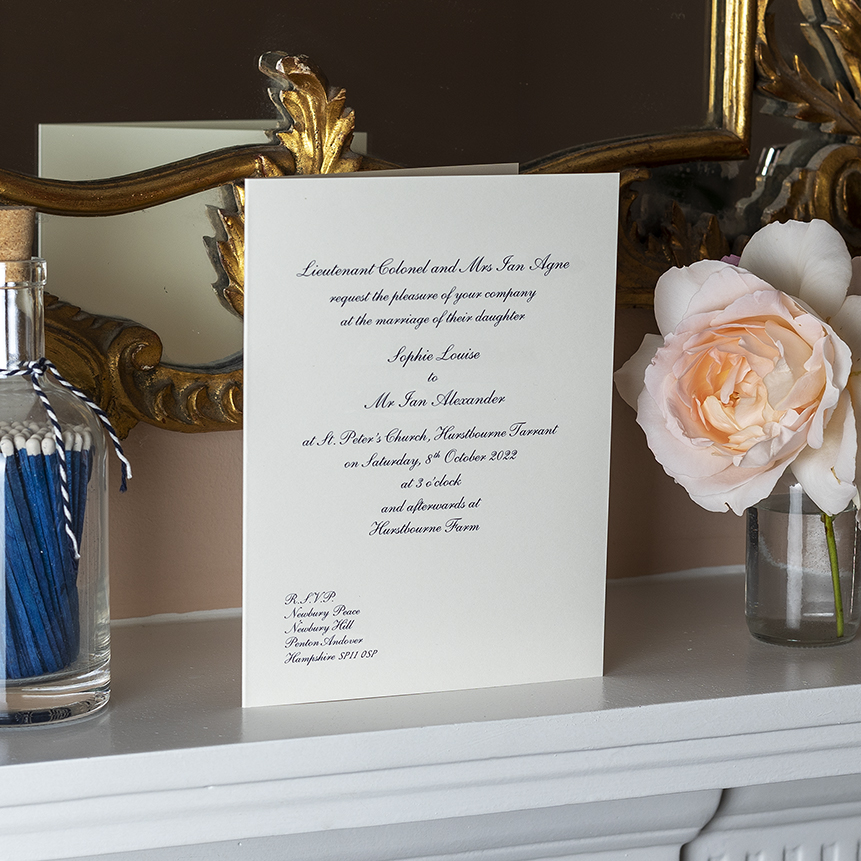 Lieutenant Colonel and Mrs Ian Agne
request the pleasure of your company
at the marriage of their daughter
Sophie Louise
to
Mr Ian Alexander
at St. Peter's Church, Hurstbourne Tarrant
on Saturday, 8th October 2022
at 3 o'clock
and afterwards at
Hurstbourne Farm
R.S.V.P.
Newbury Peace
Newbury Hill
Penton Andover
Hampshire SP11 0SP